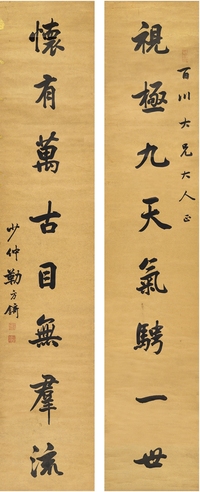 視極九天氣騁一世
百川大兄大人正
懷有萬古目無羣流
少仲勒方錡